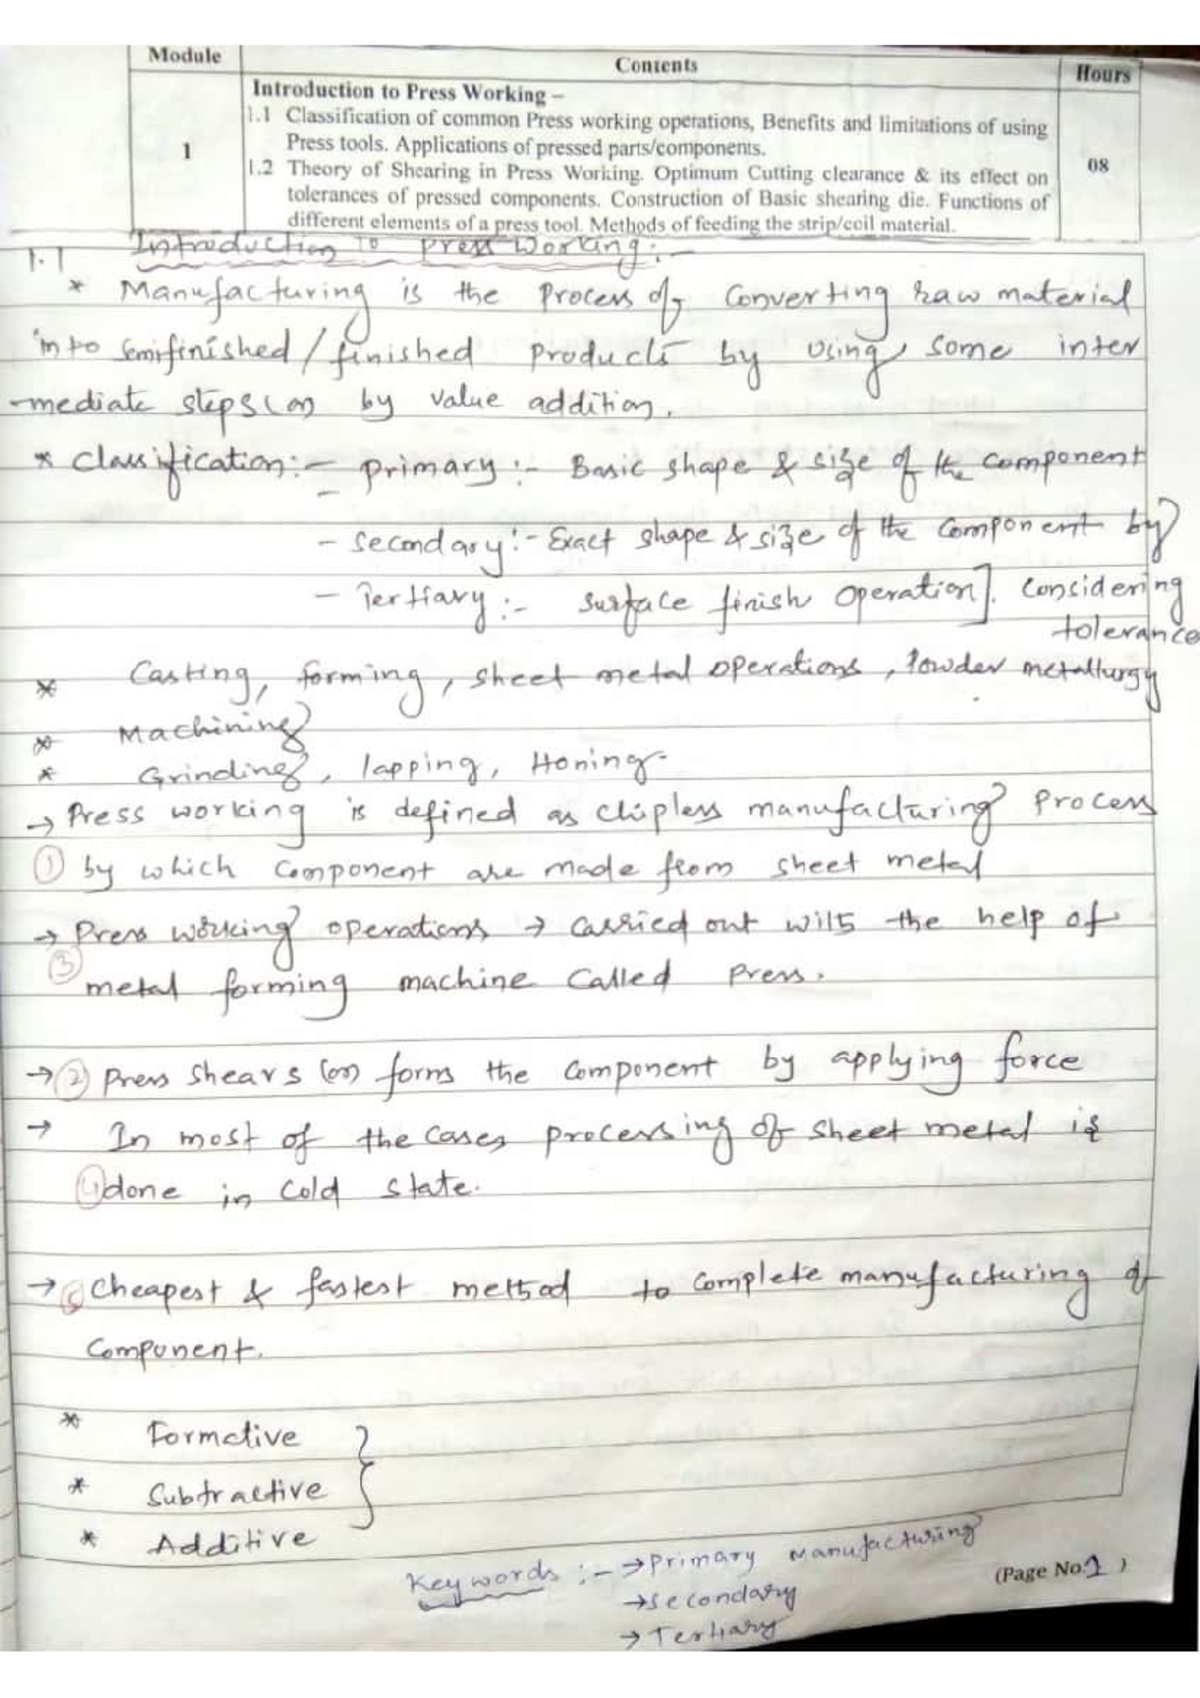 Module Contents Hours
1
Introduction to Press Working –
1.1 Classification of common Press working operations, Benefits and limitations of using
Press tools. Applications of pressed parts/components.
1.2 Theory of Shearing in Press Working. Optimum Cutting clearance & its effect on
tolerances of pressed components. Construction of Basic shearing die. Functions of
different elements of a press tool. Methods of feeding the strip/coil material.
08
1.1 Introduction To Press Working:-
* Manufacturing is the process of converting raw material
into semifinished/finished products by using some inter
-mediate steps (or) by value addition.
* Classification:- - primary:- Basic shape & size of the component
- secondary:- Exact shape & size of the component by
- Tertiary:- surface finish operation]. considering
tolerance
* Casting, forming, sheet metal operations, Powder metallurgy
* Machining
* Grinding, lapping, Honing-
→ Press working is defined as chipless manufacturing process
① by which component are made from sheet metal
→ Press working operations → carried out with the help of
③ metal forming machine called press.
→ ② press shears (or) forms the component by applying force
→ In most of the cases processing of sheet metal is
④ done in cold state.
→ ⑤ cheapest & fastest method to complete manufacturing of
component.
* Formative }
* Subtractive
* Additive
Keywords:- → Primary Manufacturing
→ secondary
→ Tertiary
(Page No. 1 )